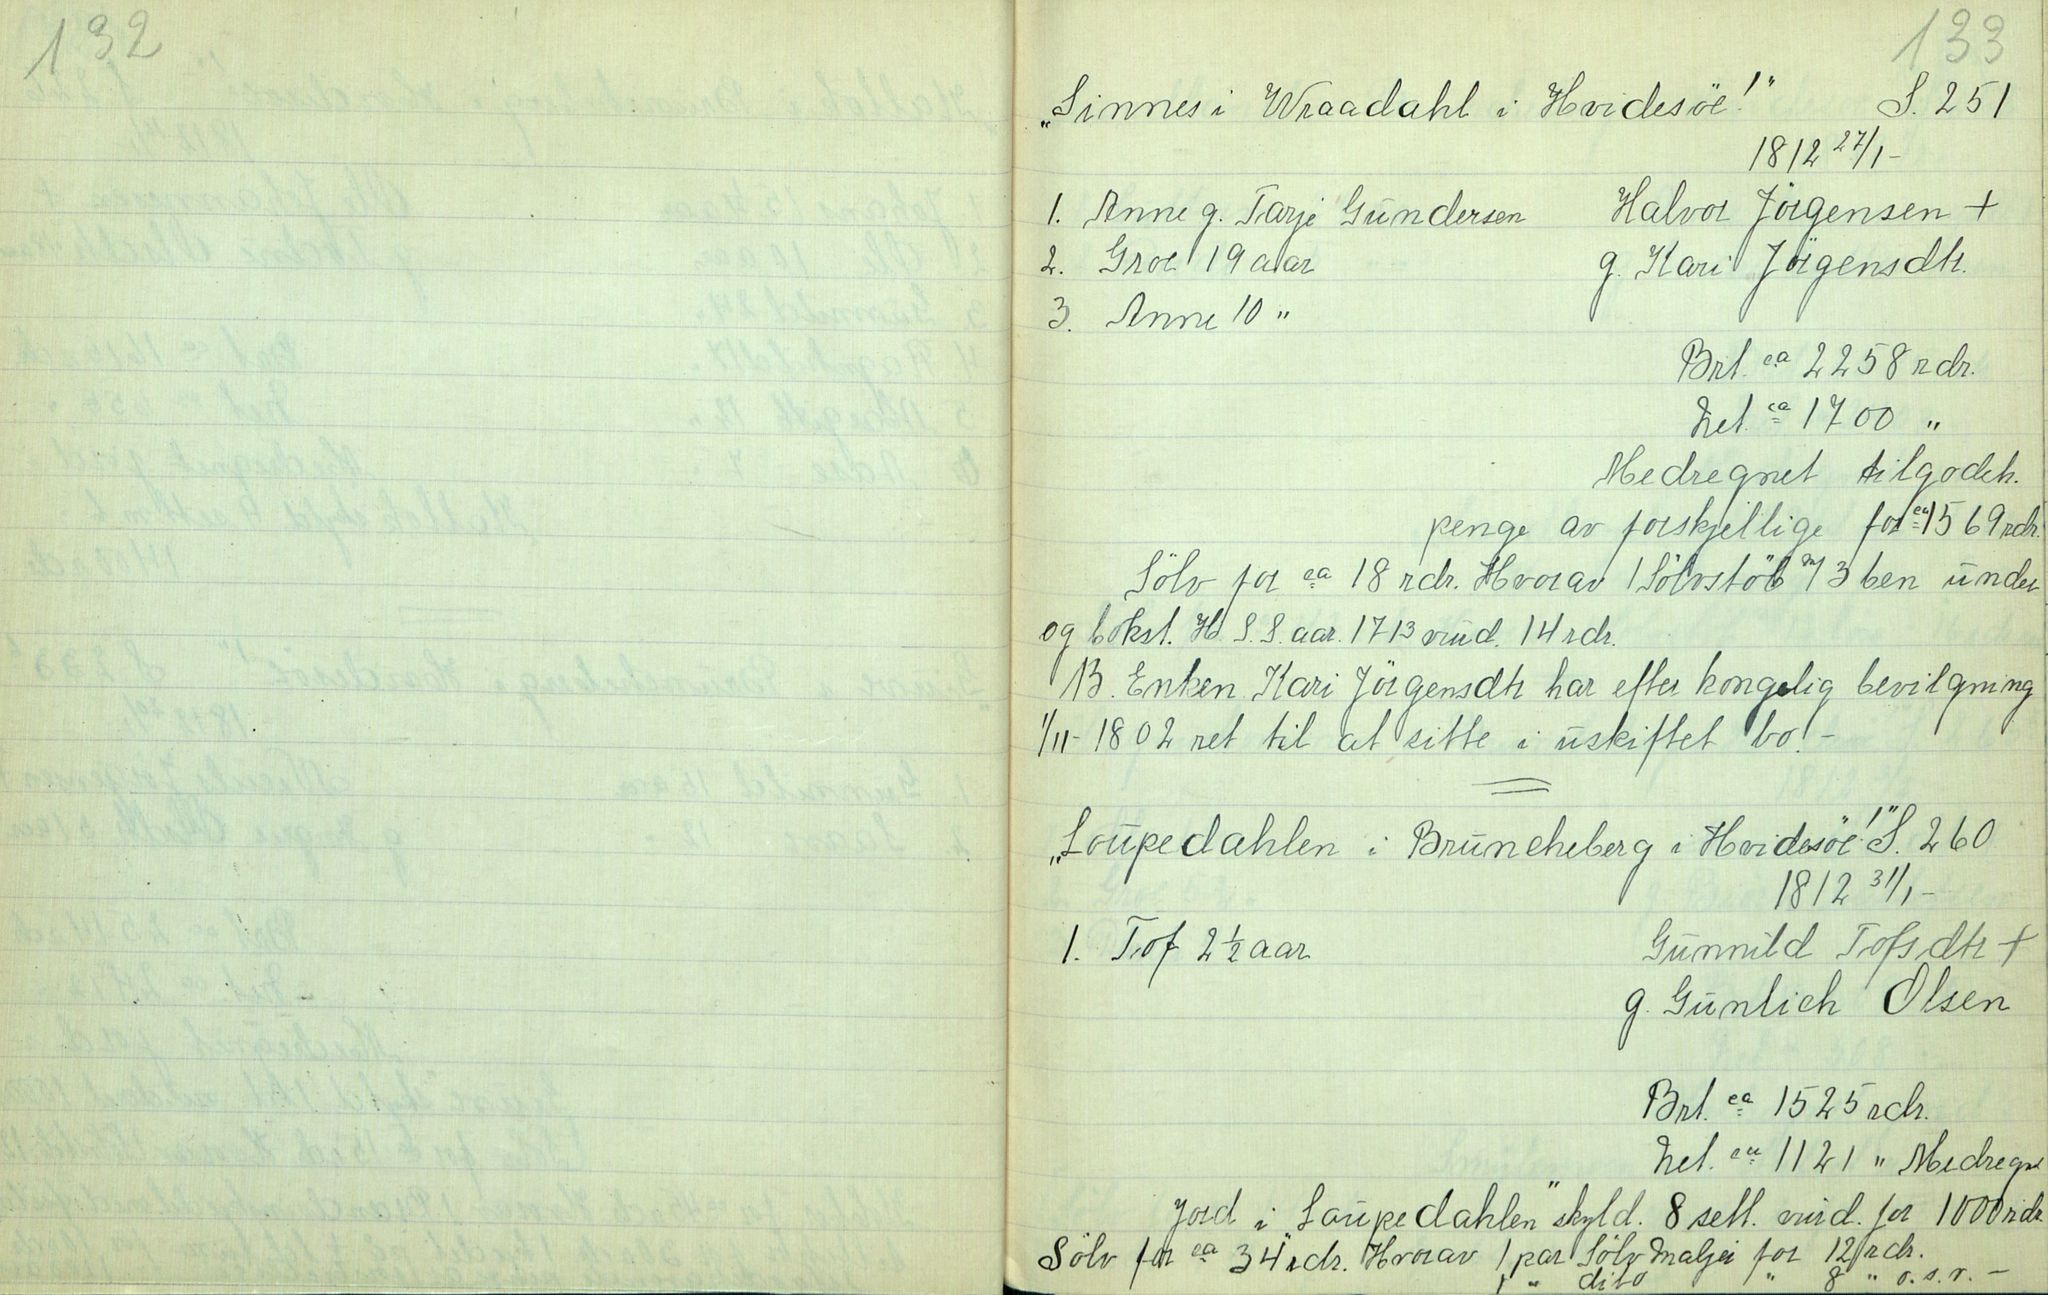 132
133
„Sinnes i Wraadahl i Hvidesöe!" S. 251
1812 27/1-
1. Anne g. Tarje Gundersen Halvor Jörgensen +
2. Groe 19 aar g. Kari Jörgensdtr.
3. Anne 10 "
Brt. ca 2258 rdr.
Net. ca 1700 "
Medregnet tilgodeh.
penge av forskjellige for ca 1569 rdr.
Sölv for ca 18 rdr. Hvorav 1 Sölvstöb m/ 3 ben under
og bokst. H. S. S. aar. 1713 vurd. 14 rdr.
NB. Enken Kari Jörgensdtr har efter kongelig bevilgning
1/11- 1802 ret til at sitte i uskiftet bo. -
„Loupedahlen i Bruncheberg i Hvidesöe!" S. 260
1812 31/1-
1. Tof 2 1/2 aar Gunnild Tofsdtr +
g. Gunlich Olsen
Brt. ca 1525 rdr.
Net. ca 1121 " Medregnet
Jord i Loupedahlen" skyld. 8 sett. vurd. for 1000 rdr.
Sölv for ca 34 rdr. Hvorav 1 par Sölv Maljer for 12 rdr.
1 " dito " 8 " o.s.v. -